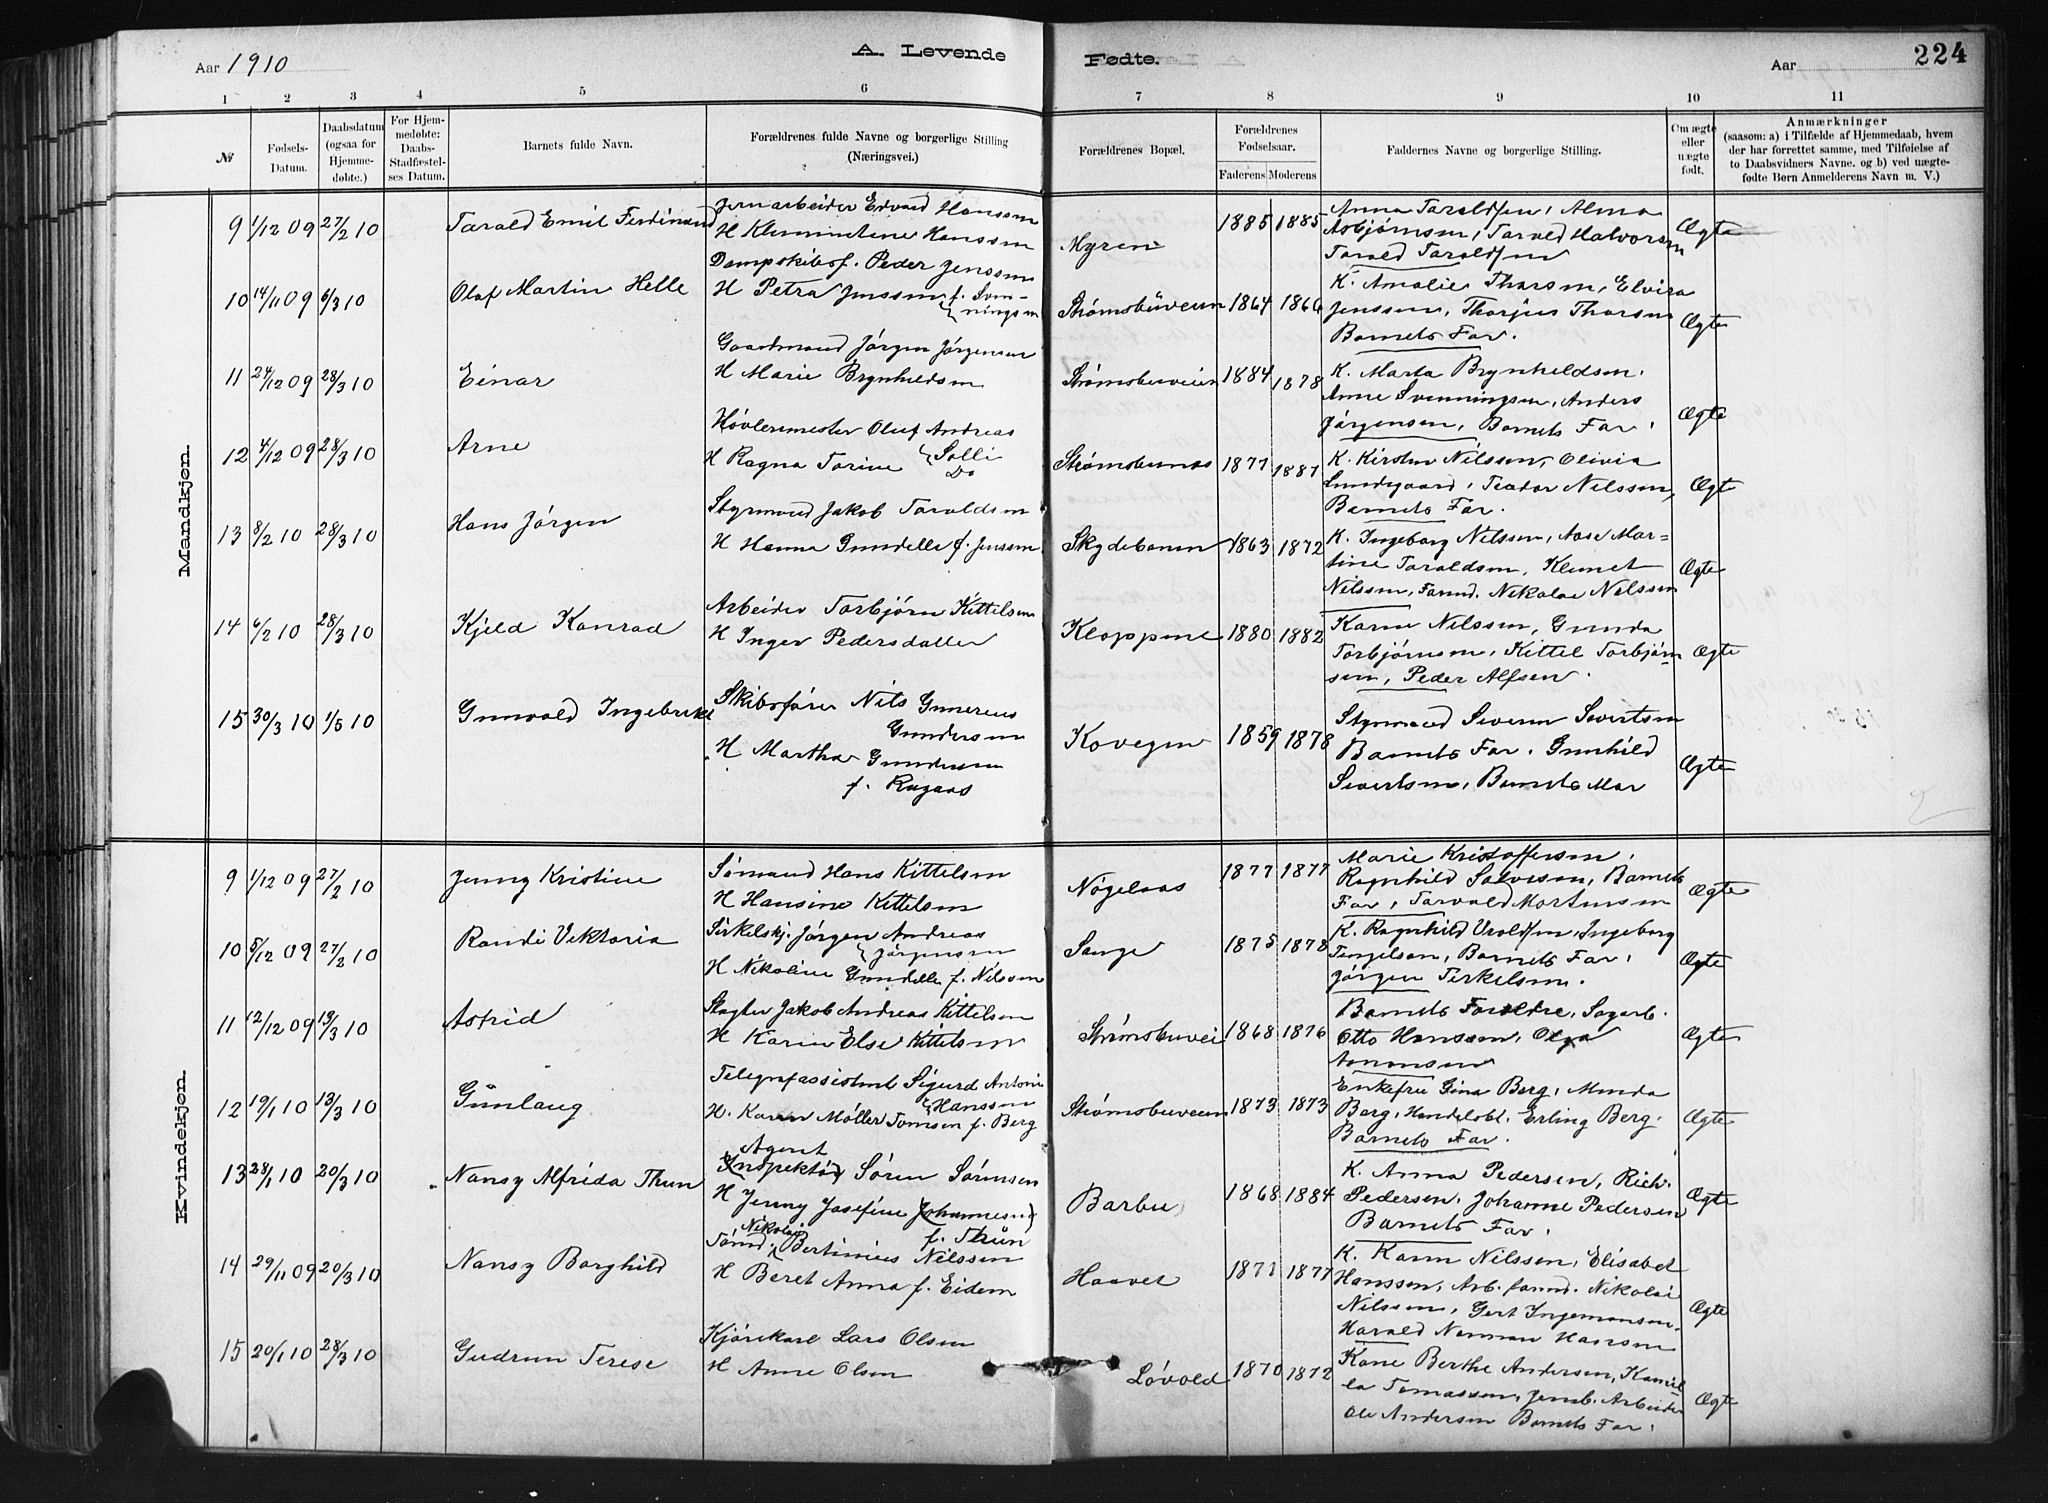 Aar 1910
A. Levende
Fødte.
Aar
224
1 2 3 4 5 6 7 8 9 10 11
№
Fødsels-Datum.
Daabsdatum (ogsaa for Hjemme-døbte.)
For Hjem-medøbte: Daabs-Stadfæstel-ses Datum.
Barnets fulde Navn.
Forældrenes fulde Navne og borgerlige Stilling (Næringsvei.)
Forældrenes Bopæl.
Forældrenes Fødselsaar.
Faderens Moderens
Faddernes Navne og borgerlige Stilling.
Om ægte eller uægte født.
Anmærkninger
(saasom: a) i Tilfælde af Hjemmedaab, hvem
der har forrettet samme, med Tilføielse af
to Daabsvidners Navne. og b) ved uægte-
fødte Børn Anmelderens Navn m. V.)
Mandkjøn.
9 1/12 09 27/2 10 Tarald Emil Ferdinand
Jernarbeider Edvard Hanssen
H Klemmetine Hanssen
Myren 1885 1885
Anna Taraldsen, Alma
Asbjørnsen, Tarald Halvorsen
Tarald Taraldsen
Ægte
10 14/11 09 6/3 10 Olaf Martin Helle
Dampskibsf. Peder Jenssen
H Petra Jenssen f. Sven-
ningsen
Strømsbuveien 1864 1866
K. Amalie Thorsen, Elvira
Jenssen, Thorjus Thorsen
Barnets Far.
Ægte
11 24/12 09 28/3 10 Einar
Gaardmand Jørgen Jørgensen
H Marie Brynhildsen
Strømsbuveien 1884 1878
K. Marta Brynhildsen.
Anne Svenningsen, Anders
Jørgensen, Barnets Far.
Ægte
12 4/12 09 28/3 10 Arne
Høvlermester Oluf Andreas
Solli
H Ragna Torine Do
Strømsbunes 1877 1881
K. Kirsten Nilssen, Olivia
Lundegaard, Teodor Nilssen,
Barnets Far.
Ægte
13 8/2 10 28/3 10 Hans Jørgen
Styrmand Jakob Taraldsen
H Hanna Gundelle f. Jenssen
Skydebanen 1863 1872
K. Ingeborg Nilssen, Aase Mar-
tine Taraldsen, Klemet
Nilssen, Nikolai Nilssen
Ægte
14 6/2 10 28/3 10 Kjeld Konrad
Arbeider Torbjørn Kittelsen
H Inger Pedersdatter
Kloppene 1880 1882
Karen Nilssen, Gunda
Torbjørnsen, Kittel Torbjørn-
sen, Peder Alfsen.
Ægte
15 30/3 10 1/5 10 Gunvald Ingebrikt
Skibsfører Nils Gunerius
Gundersen
H Martha Gundersen
f.
Kovegen 1859 1878
Styrmand Severin Sivertsen
Barnets Far. Gunhild
Sivertsen, Barnets Mor
Ægte
Kvindekjøn.
9 1/12 09 27/2 10 Jenny Kristine
Sømand Hans Kittelsen
H Hansine Kittelsen
Nøgelaas 1877 1877
Marie Kristoffersen,
Ragnhild Salvesen, Barnets
Far, Tarvald Mortensen
Ægte
10 5/12 09 27/2 10 Randi Viktoria
Sirkelskj. Jørgen Andreas
Jørgensen
H Nikoline Gundelle f. Nilssen
Songe 1875 1878
K. Ragnhild Uroldsen, Ingeborg
Tengelsen, Barnets Far,
Jørgen Terkelsen.
Ægte
11 12/12 09 13/3 10 Astrid
Slagter Jakob Andreas Kittelsen
H Karen Else Kittelsen
Strømsbuvei 1868 1876
Barnets Forældre, Sagarb.
Otto Hanssen, Olga
Aanonsen
Ægte
12 19/1 10 13/3 10 Gunlaug
Telegrafassistent Sigurd Antoni
Hanssen
H. Karen Møller Tomsen f. Berg
Strømsbuveien 1873 1873
Enkefru Gina Berg, Minda
Berg, Handelsbt. Erling Berg.
Barnets Far.
Ægte
13 28/1 10 20/3 10 Nansy Alfrida Thun
Agent
Inspektør Søren Sørensen
H Jenny Josefine Johannesen
f. Thun
Barbu 1868 1884
K. Anna Pedersen, Rich.
Pedersen, Johanne Pedersen
Barnets Far.
Ægte
14 29/11 09 20/3 10 Nansy Borghild
Nikolai
Tømd. Bertinius Nilssen
H Beret Anna f. Eidem
Haavet 1871 1877
K. Karen Nilssen, Elisabet
Hanssen, Arb. formd. Nikolai
Nilssen, Gert Ingemansen.
Harald Norman Hansen
Ægte
15 20/1 10 28/3 10 Gudrun Terese
Kjørekarl Lars Olsen
H Anne Olsen
Løvold 1870 1872
Kone Berthe Andersen, Kamil-
la Tomassen, Jernb. Arbeider
Ole Andersen Barnets Far.
Ægte